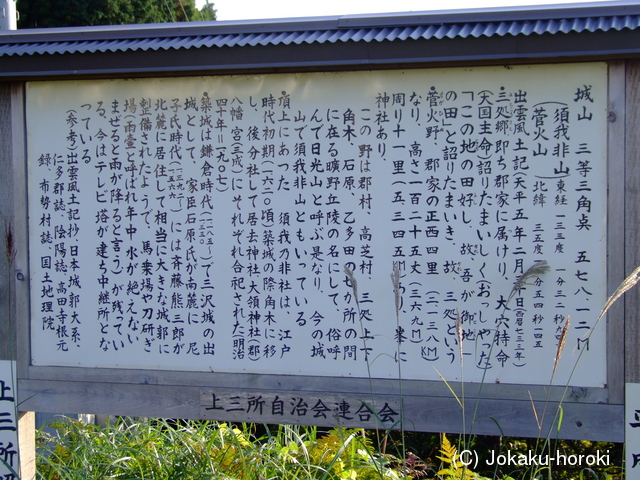 城山　三等三角点　五七八・一二M
（須我非山
（菅火山）
東経一三三度　一分三二秒六
北緯　三五度一五分五四秒一四五
出雲風土記（天平五年二月
三処郷即ち郡家に属けり、大穴持命
（大国主命）詔りたまいしく（おっしゃった）
「この地の田好し、故、吾が御地
の田」と詔りたまいき、故、三処という
菅火野、郡家の正西四里（二・一三八KM）
なり、高さ一百二十五丈（三六九M）
周り十一里（五・三四五
神社あり。
この野は郡村、高芝村、三処上下
角木、石原、乙多田の七か所の間
に在る曠野丘陵の名にして、俗呼
んで日光山と呼ぶ是なり、今の城
山で須我非山ともいっている
頂上にあった、須我の非社は、江戸
時代初期（一六二〇頃）築城の際角木に移
し、後分社して居去神社、大領神社（郡）
八幡宮（三成）にそれぞれ合祀された（明治
四十年＝一九〇七）
築城は鎌倉時代（一一八五～一三三〇）で三沢城の出
城として、家臣石原氏が南麓に、尼
子氏時代には斉藤熊三郎が
北麓に居住して相当に大きな城郭に
整備されたようで、馬乗場や刀研ぎ
場（雨壷と呼ばれ年中、水が絶えない
まぜると雨が降ると言う）が残ってい
る、今はテレビ塔が建ち中継所とな
っている
（参考）出雲風土記抄・日本城郭大系、
仁多郡誌・陰陽誌・高田寺根元
録、布勢村誌・国土地理院
上三所自治会連合会
上三所
(C) Jokaku-horoki